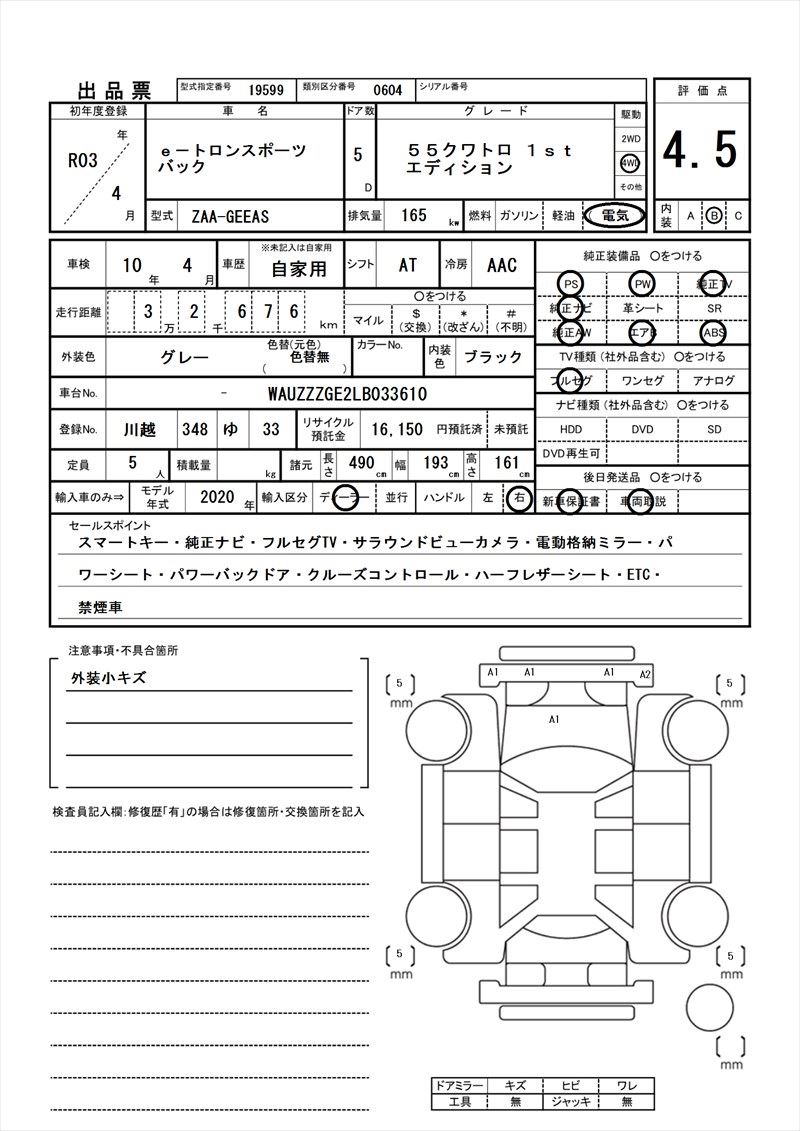 出品票 型式指定番号 19599 類別区分番号 0604 シリアル番号
評価点
4.5
内装 A B C
初年度登録 車名 ドア数 グレード 駆動
R03 年 4 月
e－トロンスポーツ
バック
5 D
５５クワトロ １ｓｔ
エディション
2WD
4WD
その他
型式 ZAA-GEEAS 排気量 165 kw 燃料 ガソリン 軽油 電気
車検 10 年 4 月 車歴 ※未記入は自家用 自家用 シフト AT 冷房 AAC
走行距離 3 万 2 千 6 7 6 km
〇をつける
マイル $(交換) *(改ざん) #(不明)
外装色 グレー 色替(元色) ( 色替無 ) カラーNo. 内装色 ブラック
車台No. - WAUZZZGE2LB033610
登録No. 川越 348 ゆ 33 リサイクル預託金 16,150 円預託済 未預託
定員 5 人 積載量 kg 諸元 長さ 490 cm 幅 193 cm 高さ 161 cm
輸入車のみ⇒ モデル年式 2020 年 輸入区分 ディーラー 並行 ハンドル 左 右
純正装備品 〇をつける
PS PW 純正TV
純正ナビ 革シート SR
純正AW エアB ABS
TV種類(社外品含む) 〇をつける
フルセグ ワンセグ アナログ
ナビ種類(社外品含む) 〇をつける
HDD DVD SD
DVD再生可
後日発送品 〇をつける
新車保証書 車両取説
セールスポイント
スマートキー・純正ナビ・フルセグTV・サラウンドビューカメラ・電動格納ミラー・パ
ワーシート・パワーバックドア・クルーズコントロール・ハーフレザーシート・ETC・
禁煙車
注意事項・不具合箇所
外装小キズ
検査員記入欄:修復歴「有」の場合は修復箇所・交換箇所を記入
A1 A1 A1 A2
A1
5 mm
5 mm
5 mm
5 mm
mm
ドアミラー キズ ヒビ ワレ
工具 無 ジャッキ 無